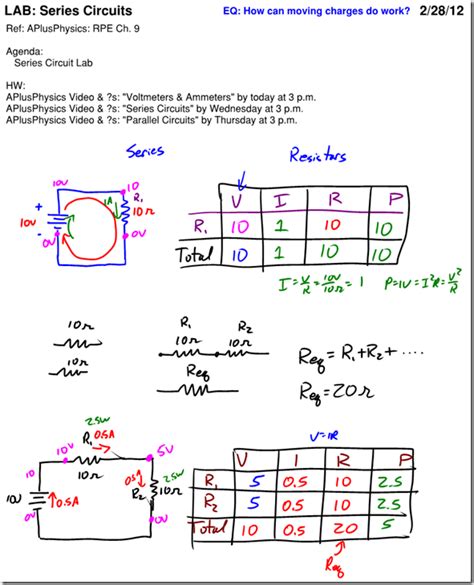 LAB: Series Circuits EQ: How can moving charges do work? 2/28/12
Ref: APlusPhysics: RPE Ch. 9
Agenda:
Series Circuit Lab
HW:
APlusPhysics Video & ?s: "Voltmeters & Ammeters" by today at 3 p.m.
APlusPhysics Video & ?s: "Series Circuits" by Wednesday at 3 p.m.
APlusPhysics Video & ?s: "Parallel Circuits" by Thursday at 3 p.m.
Series Resistors
10V 10
+ 10V - 1A R₁ 10Ω
0V 0V
V I R P
R₁ 10 1 10 10
Total 10 1 10 10
I = V/R = 10V/10Ω = 1 P=IV=I²R=V²/R
10Ω
10Ω
R₁ R₂
10Ω 10Ω
Req
Req = R₁+R₂+ ....
Req = 20Ω
2.5W
R₁ 0.5A
10 10V 10Ω 5V
10V 0.5A
0.5 R₂ 2.5W 10Ω
0V 0V
V=IR
V I R P
R₁ 5 0.5 10 2.5
R₂ 5 0.5 10 2.5
Total 10 0.5 20 5
Req